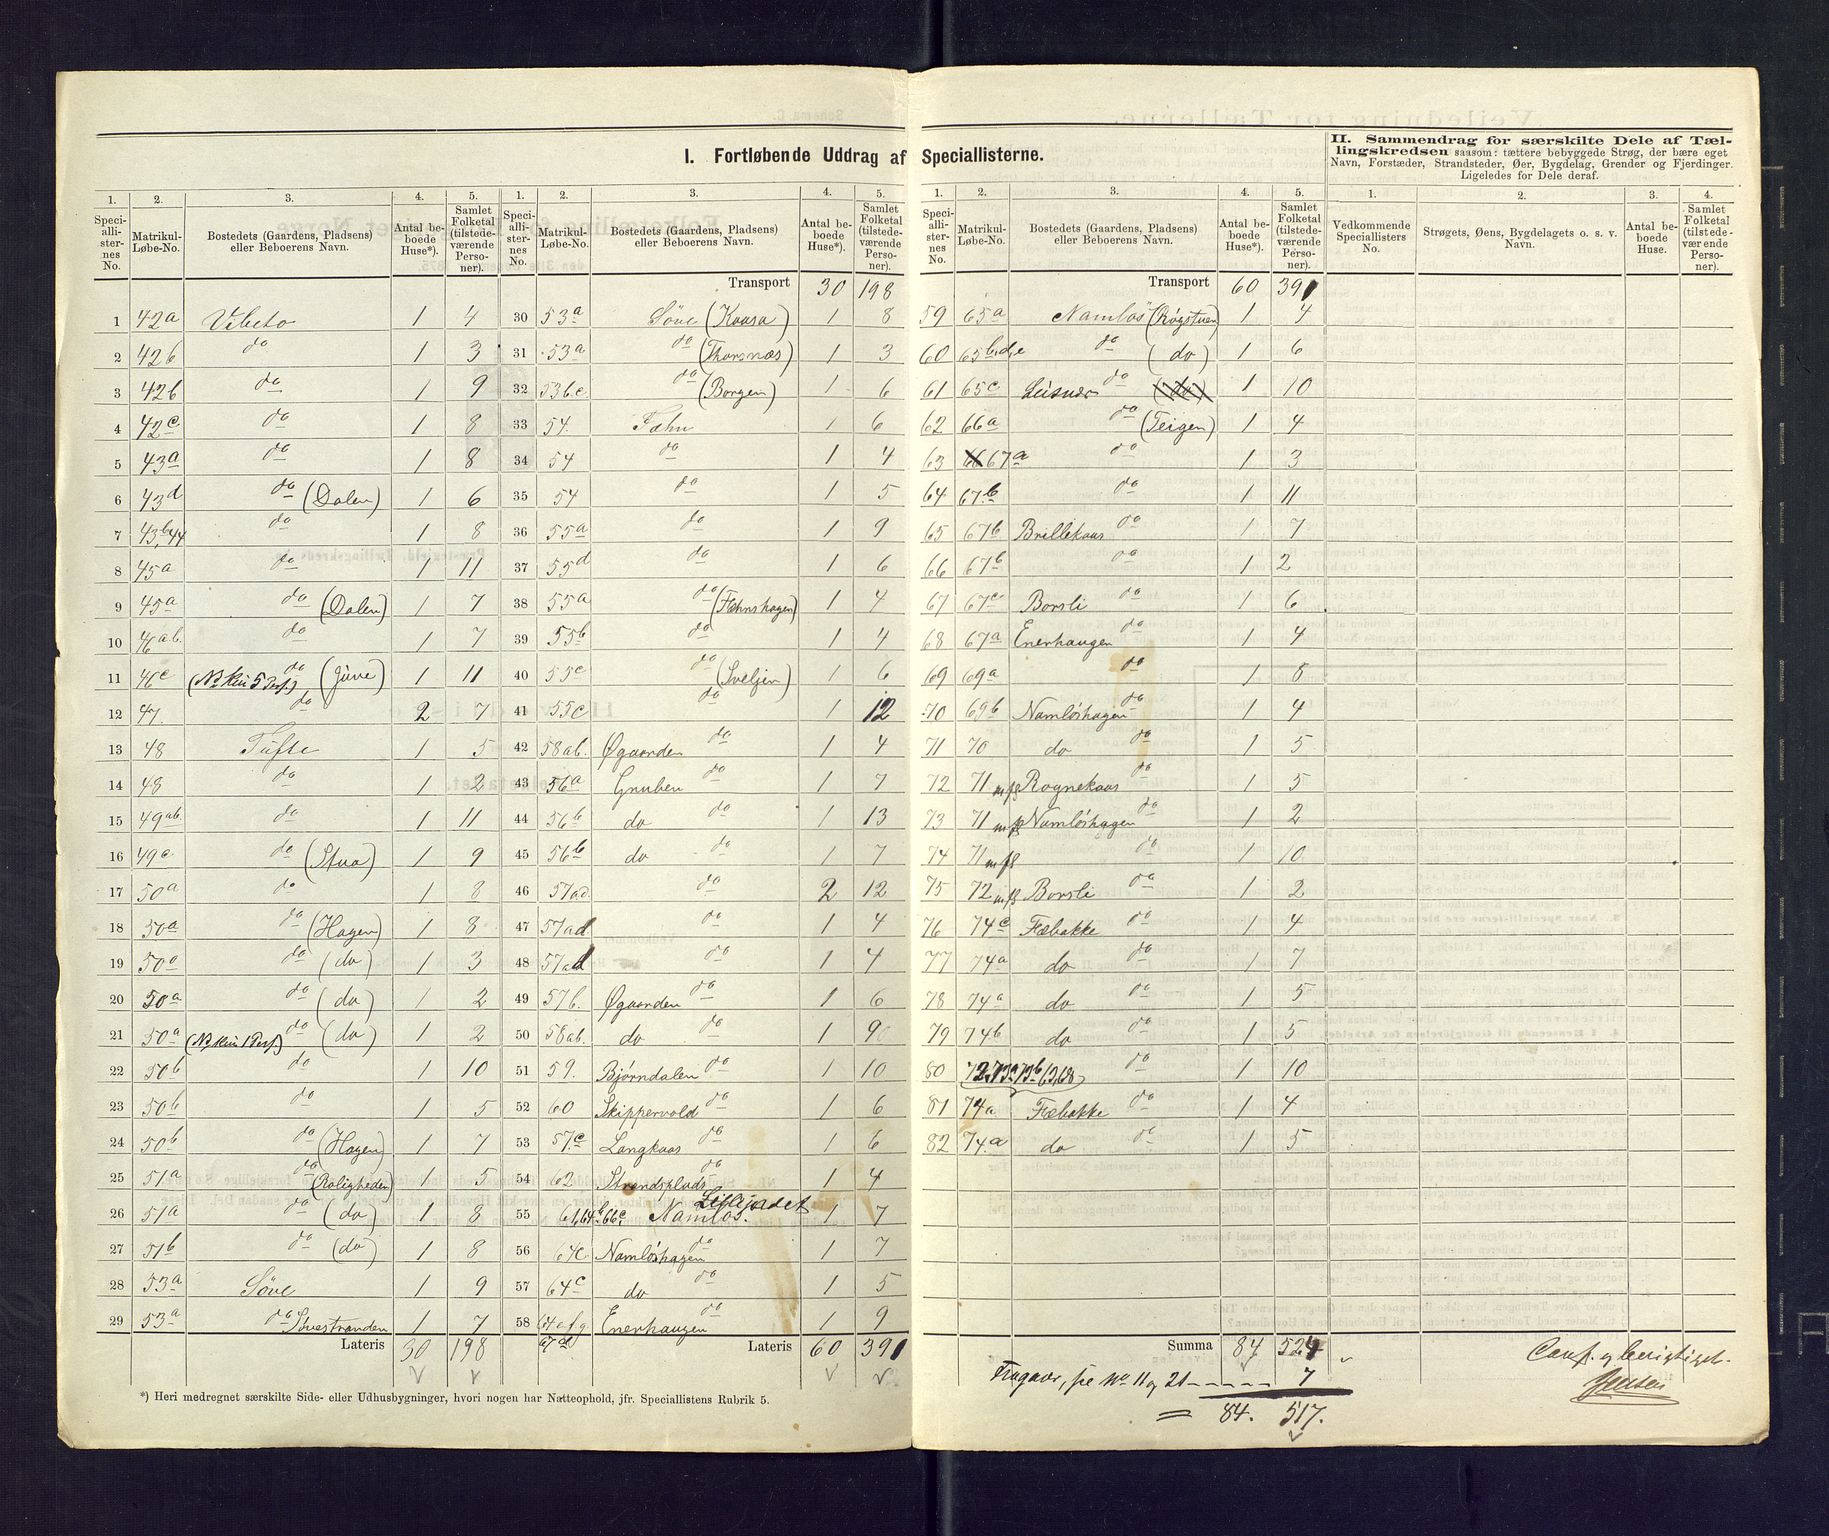 I. Fortløbende Uddrag af Speciallisterne.
II. Sammendrag for særskilte Dele af Tællingskredsen saasom: tættere bebyggede Strøg, der bære eget
Navn, Forstæder, Strandsteder, Øer, Bygdelag, Grender og Fjerdinger.
Ligeledes for Dele deraf.
1. 2. 3. 4. 5. 1. 2. 3. 4. 5. 1. 2. 3. 4. 5. 1. 2. 3. 4.
Speciallisternes No. Matrikul-Løbe-No. Bostedets (Gaardens, Pladsens) eller Beboerens Navn. Antal beboede Huse*). Samlet Folketal (tilstedeværende Personer).
Speciallisternes No. Matrikul-Løbe-No. Bostedets (Gaardens, Pladsens) eller Beboerens Navn. Antal beboede Huse*). Samlet Folketal (tilstedeværende Personer).
Speciallisternes No. Matrikul-Løbe-No. Bostedets (Gaardens, Pladsens) eller Beboerens Navn. Antal beboede Huse*). Samlet Folketal (tilstedeværende Personer).
Vedkommende Speciallisters No. Strøgets, Øens, Bygdelagets o. s. v. Navn. Antal beboede Huse. Samlet Folketal (tilstedeværende Personer).
1 42a Vibeto 1 4
2 42b do 1 3
3 42b do 1 9
4 42c do 1 8
5 43a do 1 8
6 43d do (Dalen) 1 6
7 43b,44 do 1 8
8 45a do 1 11
9 45a do (Dalen) 1 7
10 46ab. do 1 7
11 46c do (Juve) 1 11
12 47. do 2 7
13 48 Tufte 1 5
14 48 do 1 2
15 49ab. do 1 11
16 49c. do (Stua) 1 9
17 50a do 1 8
18 50a do (Hagen) 1 8
19 50a do (do) 1 3
20 50a do (do) 1 2
21 50a do (do) 1 2
22 50b do 1 10
23 50b do 1 5
24 50b do (Hagen) 1 7
25 51a do (Roligheden) 1 5
26 51a do (do) 1 8
27 51b do (do) 1 8
28 53a Söve 1 9
29 53a do Søvestranden 1 7
Lateris 30 198
*) Heri medregnet særskilte Side- eller Udhusbygninger, hvori nogen har Natteophold, jfr. Speciallistens Rubrik 5.
Transport 30 198
30 53a Söve (Kaasa) 1 8
31 53a do (Thorsnæs) 1 3
32 53b.c. do (Borgen) 1 6
33 54. Fæhn 1 6
34 54 do 1 4
35 54 do 1 5
36 55a do 1 9
37 55d do 1 6
38 55a do (Fæhnshagen) 1 4
39 55b do 1 4
40 55c do (Sveljen) 1 6
41 55c do 1 12
42 58ab. Øgaarden do 1 4
43 56a Gruben do 1 7
44 56b do do 1 13
45 56b do do 1 7
46 57a.d. do 2 12
47 57ad do 1 4
48 57ad do 1 4
49 57b. Øgaarden do 1 6
50 58ab. do do 1 9
51 59. Bjørndalen do 1 10
52 60 Skippervold do 1 6
53 57.c Langkaas do 1 6
54 62 Strandsplads do 1 4
55 61,64b,66c, Namløs. Lillejordet 1 7
56 64c. Namløshagen do 1 7
57 64c do do 1 5
58 64a.f.g. Enerhaugen do 1 9
67d Lateris 60 391
Transport 60 391
59 65a Namløs (Røgstuen) 1 4
60 65b,d,e do (do) 1 6
61 65c do (do) 1 10
62 66a do (Teigen) 1 4
63 67a do 1 3
64 67b do 1 11
65 67b Brillekaas do 1 7
66 67b do 1 2
67 67c Borsli do 1 6
68 67a Enerhaugen do 1 4
69 69a do 1 8
70 69b Namløshagen do 1 4
71 70 do do 1 5
72 71 Rognekaas do 1 5
73 71 Namløshagen do 1 2
74 71 do 1 10
75 72 Borsli do 1 2
76 74c Fæbakke do 1 4
77 74a do do 1 7
78 74a do do 1 5
79 74b do do 1 5
80 72,73a,73b,63,68 do 1 10
81 74a Fæbakke do 1 4
82 74.a do do 1 5
Summa 84 524
Fragaar, se No 11 og 21 ----- 7
= 84. 517.
Conf. og berigtiget.
Jensen